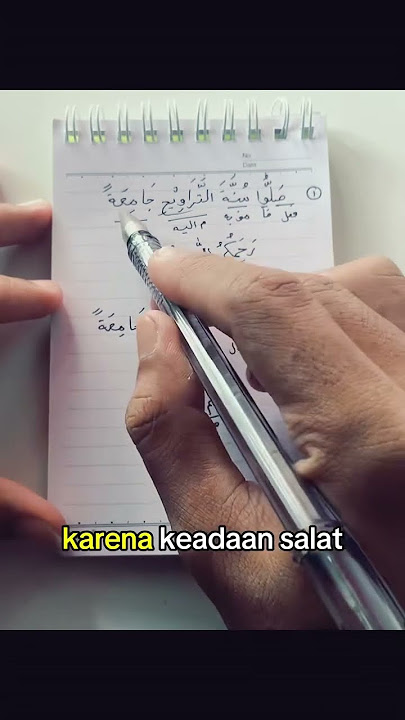 No
Date
① صَلُّوا سُنَّةَ التَّرَاوِيْحِ جَامِعَةً
فعل فا مفـ به م اليه
رَحِمَكُمُ
جَامِعَةً
karena keadaan salat